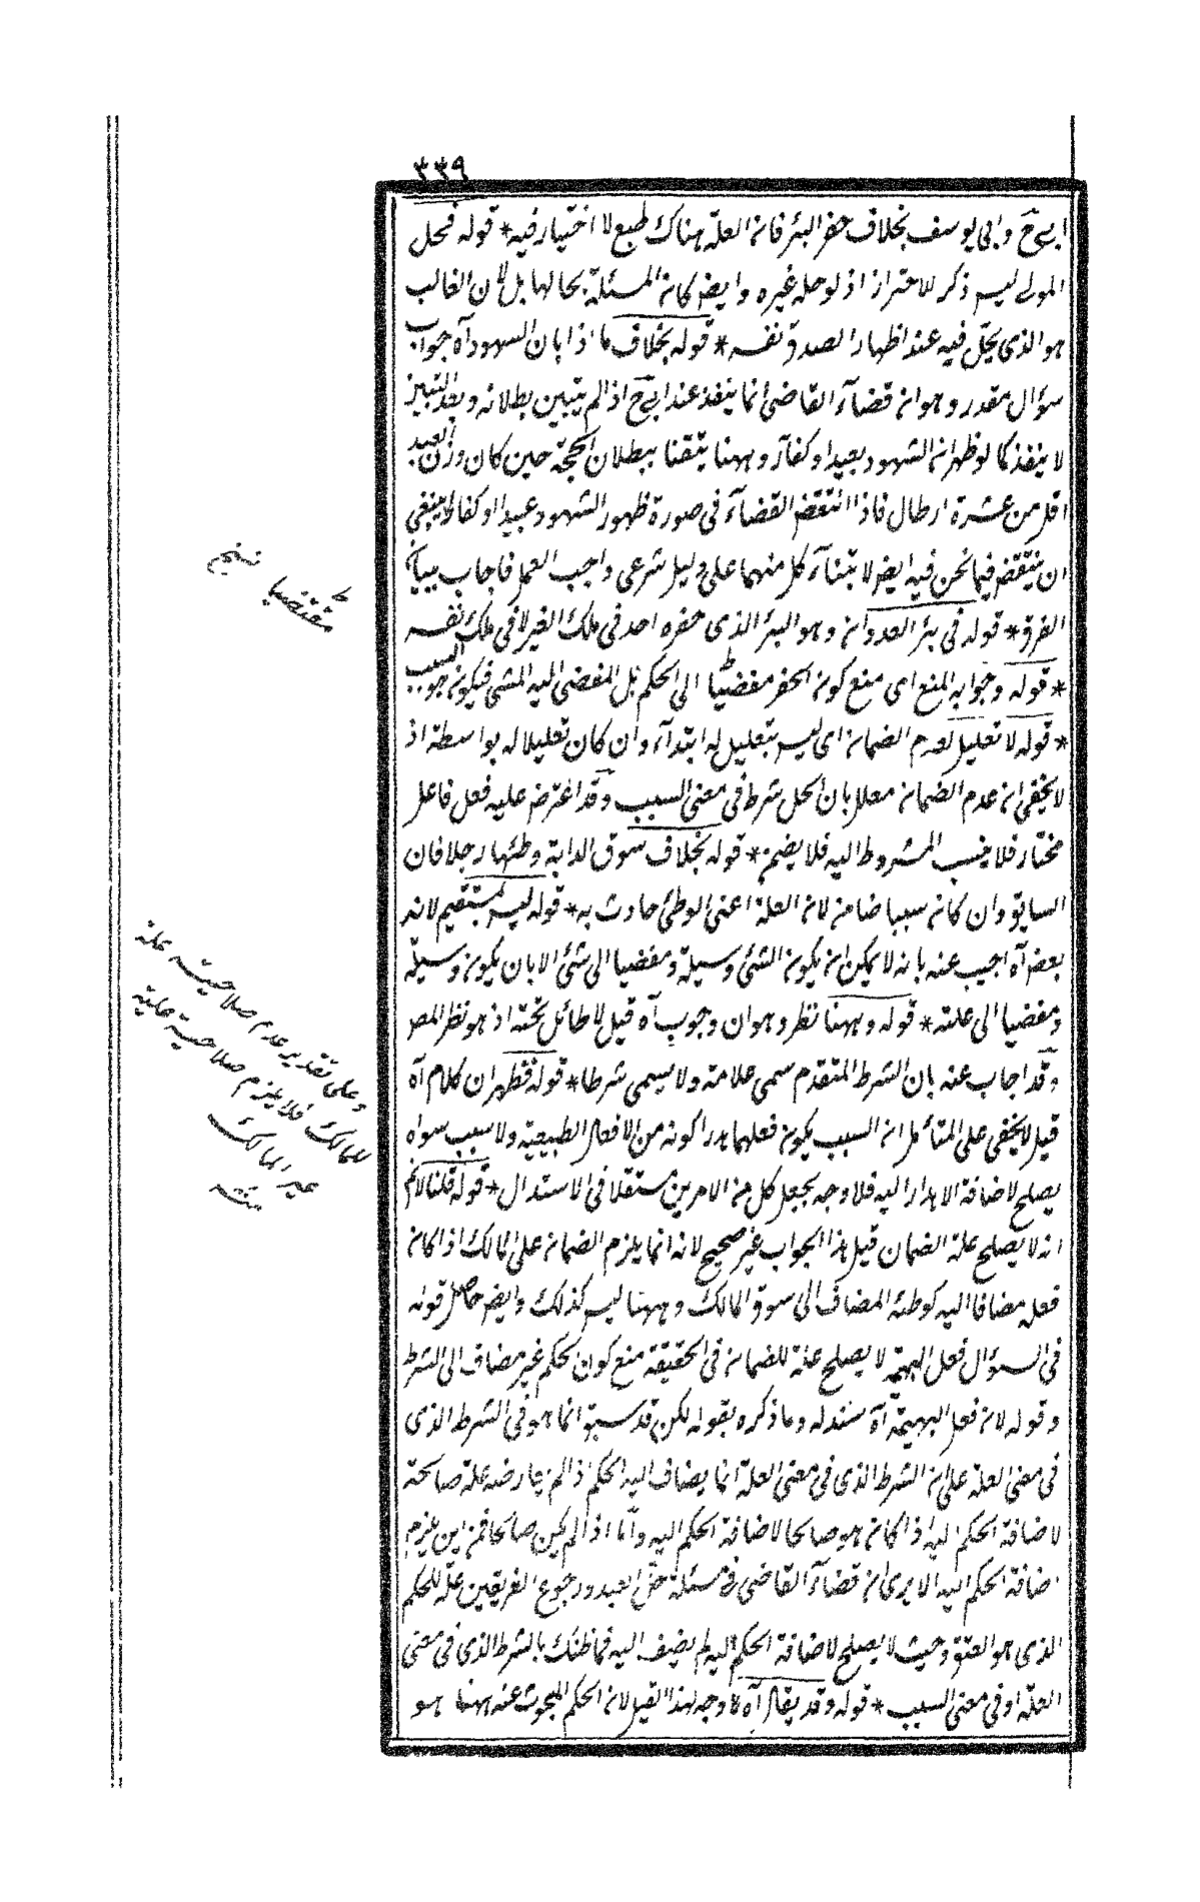 ٣٣٩
ابی ح وابی یوسف بخلاف حفر البئر فان العلة هناک طبع لا اختیار فیه * قوله فحل
المولی لیس ذکر للاحتراز اذ لو حله غیره وایضا کان المسئلة بحالها بل لان الغالب
هو الذی یحل فیه عند اظهار الصدق نفسه * قوله بخلاف ما اذا بان الشهود آه جواب
سؤال مقدر وهو ان قضاء القاضی انما ینفذ عند ابی ح اذ الم یتبین بطلانه وبعد التبین
لا ینفذ کما لو ظهر ان الشهود عبید او کفار وههنا یتقنا ببطلان الحجة حین کان وزن القید
اقل من عشرة ارطال فاذا انتقض القضاء فی صورة ظهور الشهود عبیدا او کفارا ینبغی
ان ینتقض فیما نحن فیه ایضا لابتناء کل منهما علی دلیل شرعی واجب العمل فاجاب ببیان
الفرق * قوله فی بئر العدوان وهو البئر الذی حفره احد فی ملک الغیر لا فی ملک نفسه
* قوله وجوابه المنع ای منع کون الحفر مفضیا الی الحکم بل المفضی الیه المشی فیکون هو السبب
* قوله لا تعلیل لعدم الضمان ای لیس بتعلیل له ابتداء وان کان تعلیلا له بواسطة اذ
لا یخفی ان عدم الضمان معلل بان الحل شرط فی معنی السبب وقد اعترض علیه فعل فاعل
مختار فلا ینسب المشروط الیه فلا یضمن * قوله بخلاف سوق الدابة وطئها رجلا فان
السائق وان کان سببا ضامن لان العلة اعنی الوطئ حادث به * قوله لیس بمستقیم لانه
بعض آه اجیب عنه بانه لا یمکن ان یکون الشئ وسیلة ومفضیا الی شئ الا بان یکون وسیلة
ومفضیا الی علته * قوله وههنا نظر وهو ان وجوب آه قیل لا طائل تحته اذ هو نظر المص
وقد اجاب عنه بان الشرط المتقدم سمی علامة ولا یسمی شرطا * قوله فظهر ان کلام آه
قیل لا یخفی علی المتأمل ان السبب یکون فعلهما هدرا کونه من الافعال الطبیعیة ولا سبب سواه
یصلح لاضافة الاهدار الیه فلا وجه بجعل کل من الامرین مستقلا فی الاستدلال * قوله قلنا لا نم
انه لا یصلح علة الضمان قیل هذا الجواب غیر صحیح لانه انما یلزم الضمان علی المالک اذا کان
فعله مضافا الیه کوطئه المضاف الی سوق المالک وههنا لیس کذلک وایضا حاصل قوله
فی السؤال فعل البهیمة لا یصلح علة للضمان فی الحقیقة منع کون الحکم غیر مضاف الی الشرط
وقوله لان فعل البهیمة آه سند له وما ذکره بقوله لکن قد سبق انما هو فی الشرط الذی
فی معنی العلة علی ان الشرط الذی فی معنی العلة انما یضاف الیه الحکم اذ الم یعارضه علة صالحة
لاضافة الحکم الیه اذا کان هو صالحا لاضافة الحکم الیه واما اذ الم یکن صالحا فمن این یلزم
اضافة الحکم الیه الا یری ان قضاء القاضی فی مسئلة حل العبد ورجوع الفریقین علة للحکم
الذی هو العتق وحیث لا یصلح لاضافة الحکم الیه لم یضف الیه فما ظنک بالشرط الذی فی معنی
العلة او فی معنی السبب * قوله وقد یقال آه لا وجه لهذا القیل لان الحکم المبحوث عنه ههنا هو
مقتضیا نسخه
وعلی تقدیر عدم صلاحیته علة
للمالک فلا یلزم صلاحیة علیته
غیر المالک
منه